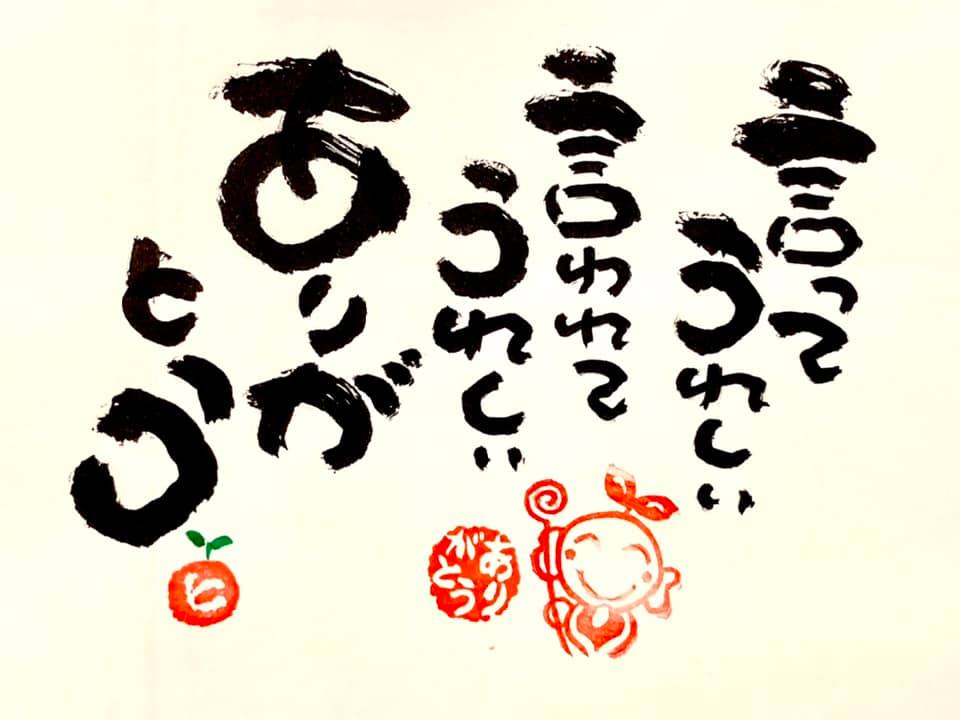 言って
うれしい
言われて
うれしい
ありが
とう
ありがとう
ヒ